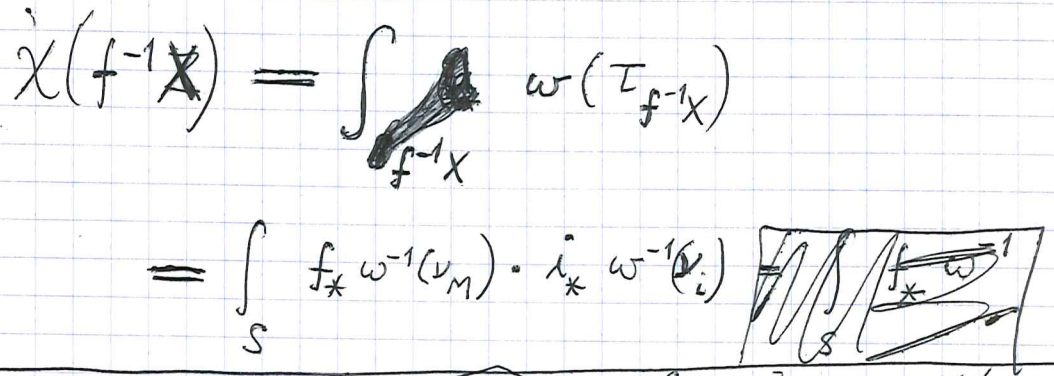 χ(f⁻¹X) = ∫_{f⁻¹X} ω(τ_{f⁻¹X})
= ∫_S f_* ω⁻¹(ν_M) · i_* ω⁻¹(ν_i)